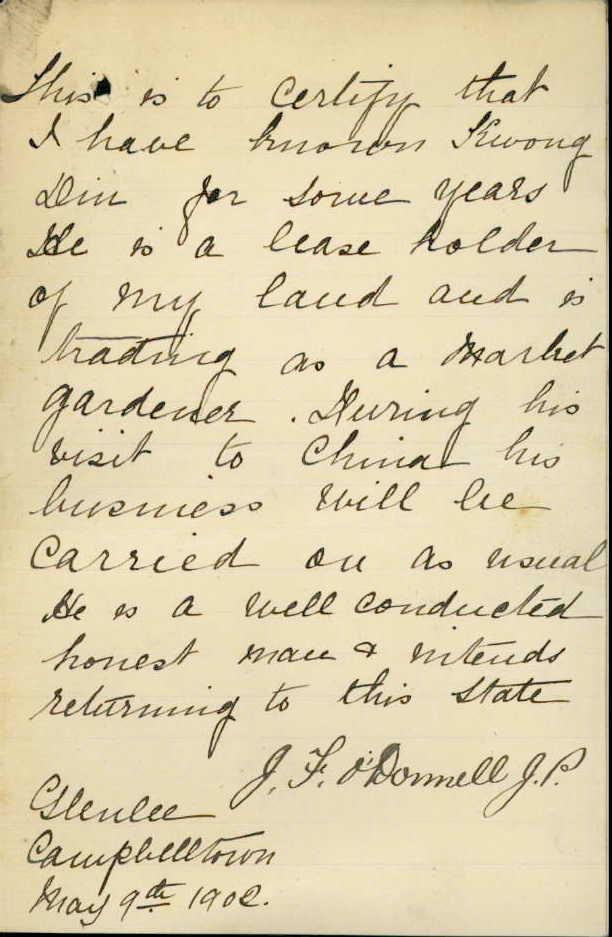 This is to certify that
I have known Kwong
Din for some years
He is a lease holder
of my land and is
trading as a Market
gardener. During his
visit to China his
business will be
carried on as usual
He is a well conducted
honest man & intends
returning to this State
J. F. O'Donnell J.P.
Glenlee
Campbelltown
May 9th 1902.